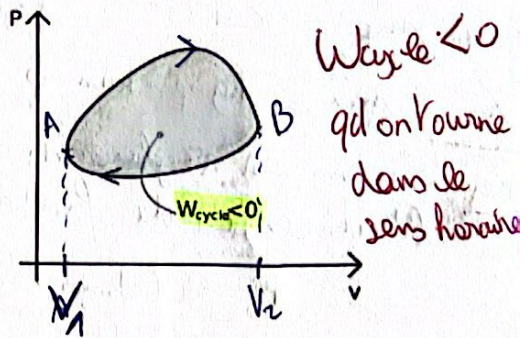 P
A
B
W cycle<0
V1
V2
V
Wcycle<0
qd on tourne
dans le
sens horaire